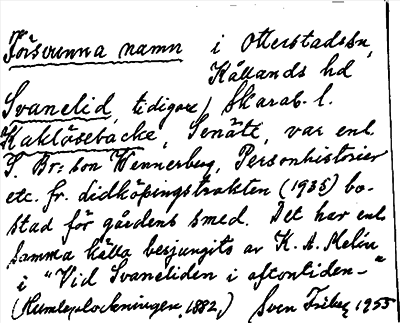 Försvunna namn i Otterstadssn,
Kållands hd
Svanelid, tidigare / Skarab. l.
Kaklösebäcke, Senäte, var enl.
S. Br:son Wennerberg, Personhistorier
etc. fr. Lidköpingstrakten (1935) bo-
stad för gårdens smed. Det har enl.
samma källa besjungits av K. A. Melin
i "Vid Svaneliden i aftontiden-"
(Humleplockningen, 1882,) Sven Friberg 1955